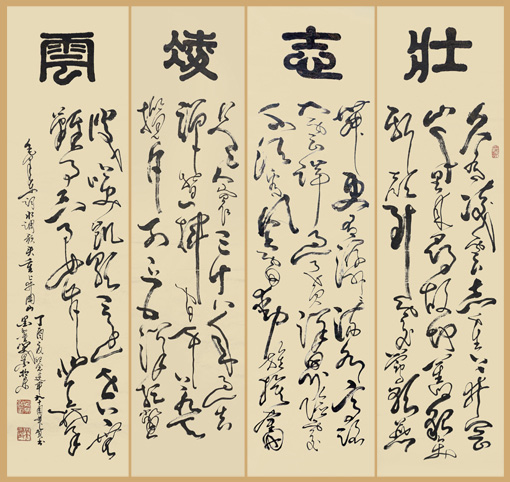 壯志凌雲
久有凌雲志重上井岡
山千里來尋故地舊貌變
新顏到處鶯歌燕
舞更有潺潺流水高路
入雲端過了黃洋界險處
不須看風雷動旌旗奮
是人寰三十八年過去
彈指一揮間可上九天
攬月可下五洋捉鱉
談笑凱歌還世上無
難事只要肯登攀
毛澤東詞水調歌頭重上井岡山
丁酉